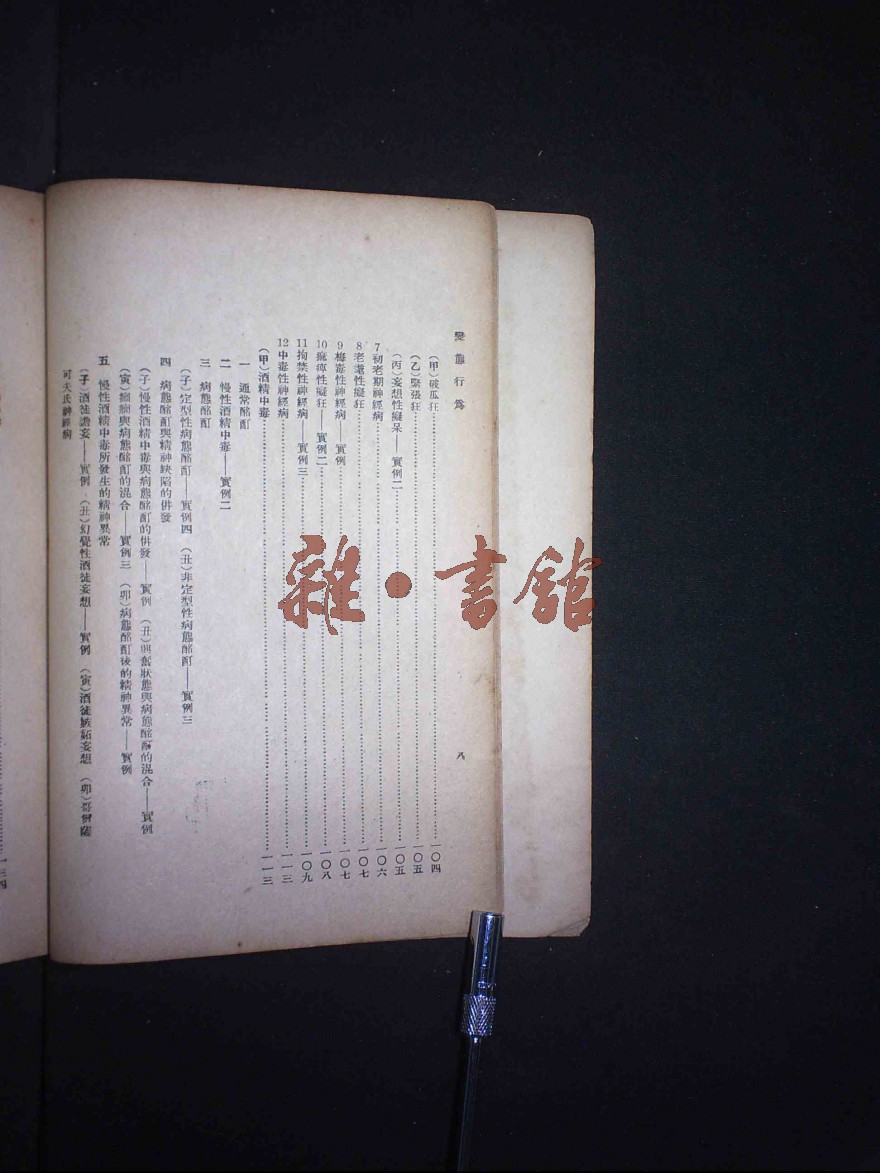 變態行爲
八
(甲)破瓜狂…一〇四
(乙)緊張狂…一〇五
(丙)妄想性癡呆——實例二…一〇五
7初老期神經病…一〇六
8老耄性癡狂…一〇七
9梅毒性神經病 實例…一〇七
10痲痺性癡狂——實例二…一〇八
11拘禁性神經病——實例三…一〇九
12中毒性神經病…一一三
(甲)酒精中毒…一一三
一 通常酩酊
二 慢性酒精中毒——實例二
三 病態酩酊
(子)定型性病態酩酊——實例四 (丑)非定型性病態酩酊——實例三
四 病態酩酊與精神缺陷的併發
(子)慢性酒精中毒與病態酩酊的併發——實例 (丑)興奮狀態與病態酩酊的混合——實例
(寅)癲癇與病態酩酊的混合——實例三 (卯)病態酩酊後的精神異常——實例
五 慢性酒精中毒所發生的精神異常
(子)酒徒譫妄——實例 (丑)幻覺性酒徒妄想——實例 (寅)酒徒嫉妬妄想 (卯)哥爾薩
可夫氏神經病
一三四
雜·書館